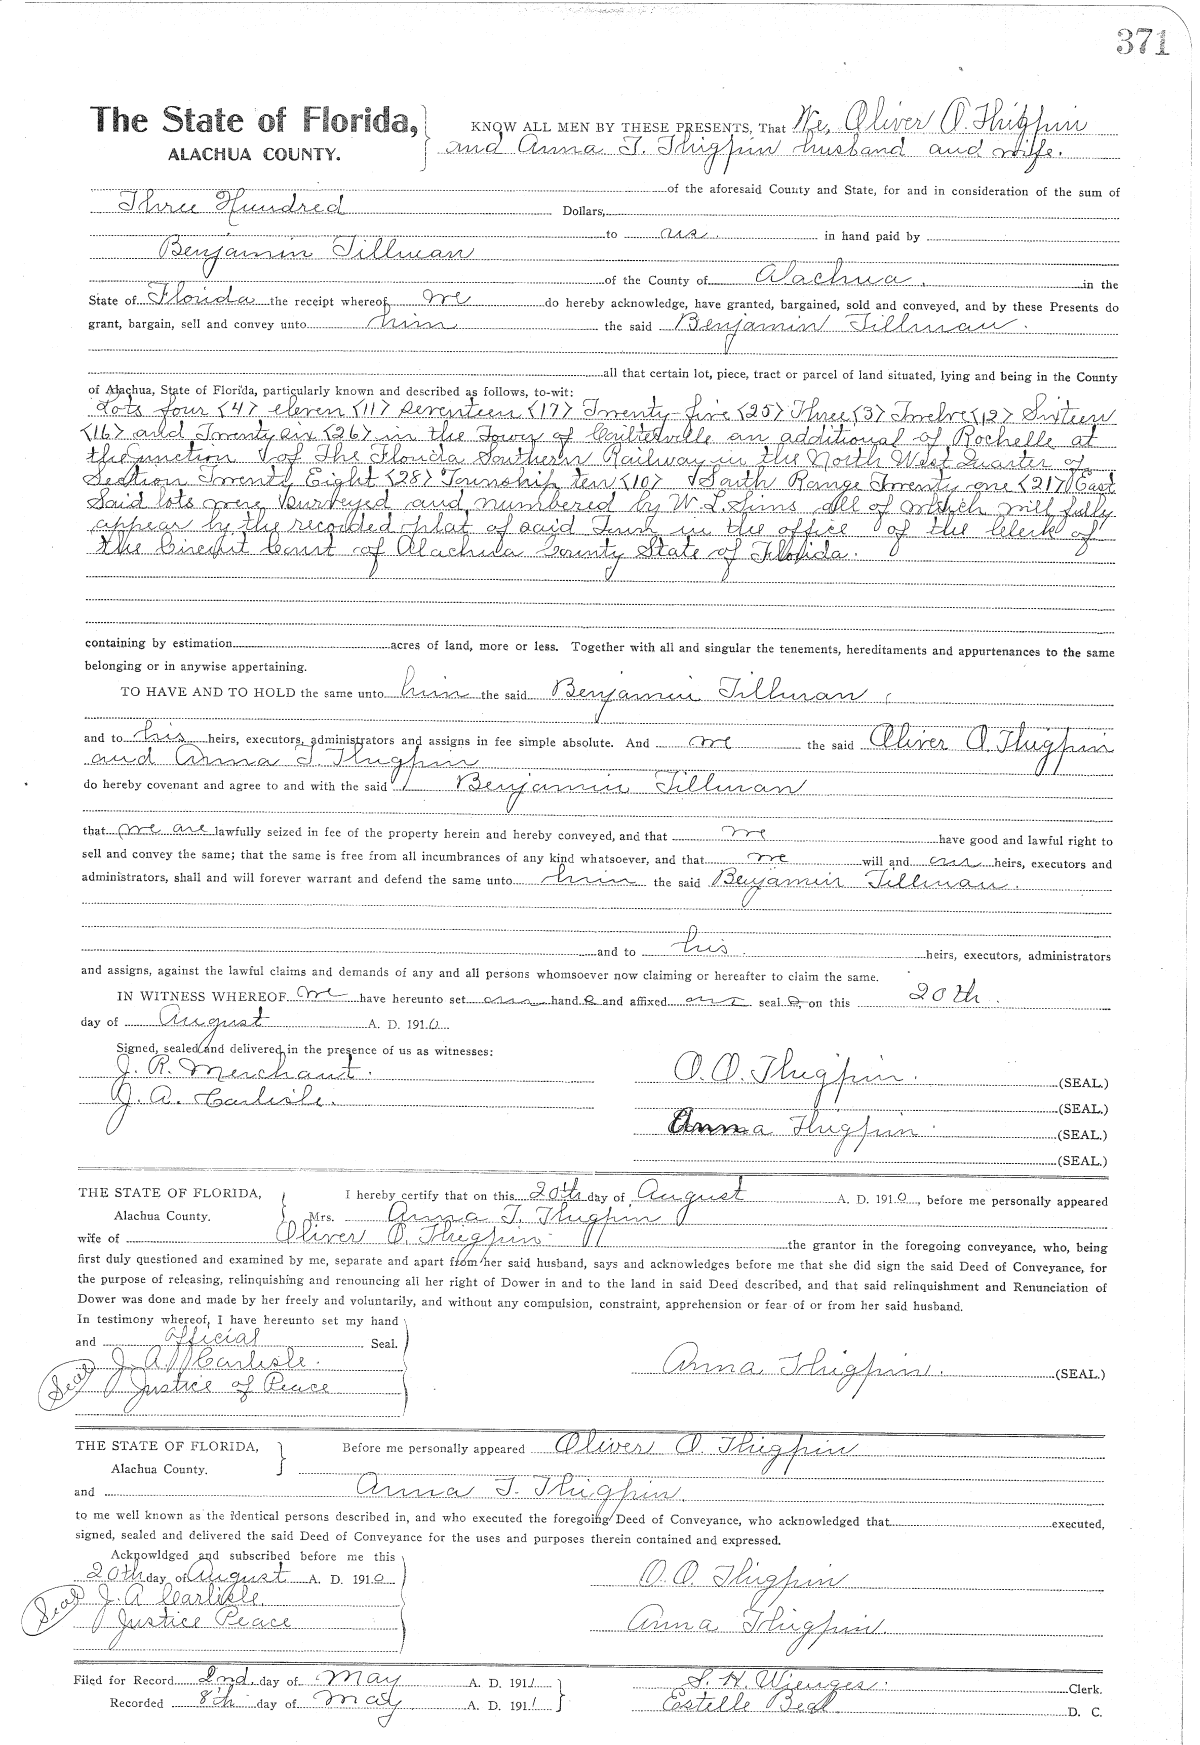 371
The State of Florida,
ALACHUA COUNTY.
KNOW ALL MEN BY THESE PRESENTS, That We, Oliver O. Thigpin
and Anna T. Thigpin husband and wife.
of the aforesaid County and State, for and in consideration of the sum of
Three Hundred Dollars,
to us. in hand paid by
Benjamin Tillman
of the County of Alachua, in the
State of Florida the receipt whereof we do hereby acknowledge, have granted, bargained, sold and conveyed, and by these Presents do
grant, bargain, sell and convey unto him the said Benjamin Tillman.
all that certain lot, piece, tract or parcel of land situated, lying and being in the County
of Alachua, State of Florida, particularly known and described as follows, to-wit:
Lots four <4> eleven <11> seventeen <17> Twenty-five <25> Three <3> Twelve <12> Sixteen
<16> and Twenty six <26> in the Town of an additional of Rochelle at
the junction of The Florida Southern Railway in the North West Quarter of
Section Twenty Eight <28> Township ten <10> South Range Twenty one <21> East
Said lots were Surveyed and numbered by W. L. Sims all of which will fully
appear by the recorded plat of said Town in the office of the Clerk of
the Circuit Court of Alachua County State of Florida.
containing by estimation acres of land, more or less. Together with all and singular the tenements, hereditaments and appurtenances to the same
belonging or in anywise appertaining.
TO HAVE AND TO HOLD the same unto him the said Benjamin Tillman,
and to his heirs, executors, administrators and assigns in fee simple absolute. And we the said Oliver O. Thigpin
and Anna T Thigpin
do hereby covenant and agree to and with the said Benjamin Tillman
that we are lawfully seized in fee of the property herein and hereby conveyed, and that we have good and lawful right to
sell and convey the same; that the same is free from all incumbrances of any kind whatsoever, and that we will and our heirs, executors and
administrators, shall and will forever warrant and defend the same unto him the said Benjamin Tillman.
and to his heirs, executors, administrators
and assigns, against the lawful claims and demands of any and all persons whomsoever now claiming or hereafter to claim the same.
IN WITNESS WHEREOF we have hereunto set our hand s and affixed our seal s, on this 20th.
day of August A. D. 1910
Signed, sealed and delivered in the presence of us as witnesses:
J. R. Merchant.
J. A. Carlisle.
O. O. Thigpin. (SEAL.)
(SEAL.)
Anna Thigpin. (SEAL.)
(SEAL.)
THE STATE OF FLORIDA,
Alachua County.
I hereby certify that on this 20th day of August A. D. 1910, before me personally appeared
Mrs. Anna T. Thigpin
wife of Oliver O. Thigpin the grantor in the foregoing conveyance, who, being
first duly questioned and examined by me, separate and apart from her said husband, says and acknowledges before me that she did sign the said Deed of Conveyance, for
the purpose of releasing, relinquishing and renouncing all her right of Dower in and to the land in said Deed described, and that said relinquishment and Renunciation of
Dower was done and made by her freely and voluntarily, and without any compulsion, constraint, apprehension or fear of or from her said husband.
In testimony whereof, I have hereunto set my hand
and official Seal.
J. A. Carlisle.
Seal Justice of Peace
Anna Thigpin. (SEAL.)
THE STATE OF FLORIDA,
Alachua County.
Before me personally appeared Oliver O. Thigpin
and Anna T. Thigpin.
to me well known as the identical persons described in, and who executed the foregoing Deed of Conveyance, who acknowledged that executed,
signed, sealed and delivered the said Deed of Conveyance for the uses and purposes therein contained and expressed.
Acknowldged and subscribed before me this
20th day of August A. D. 1910
Seal J. A Carlisle
Justice Peace
O. O. Thigpin
Anna Thigpin.
Filed for Record 2nd. day of May A. D. 1911
Recorded 8th day of May A. D. 1911
S. H. Wienges. Clerk.
Estelle Beal. D. C.